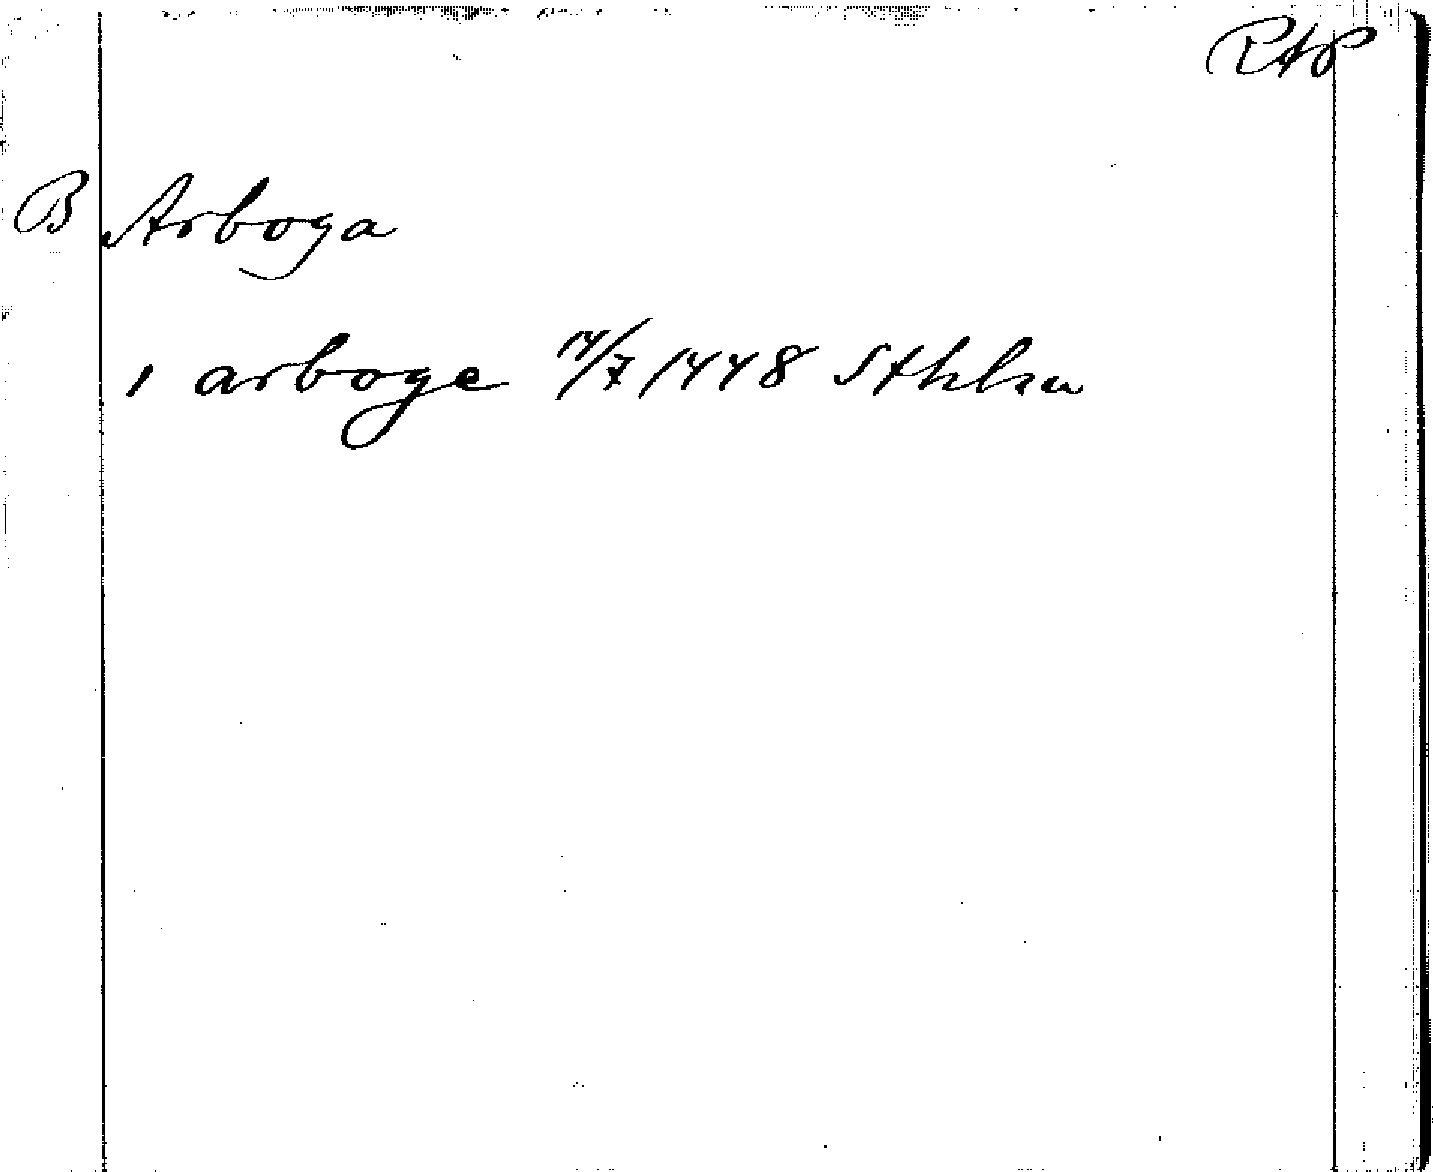 RAP
B Arboga
1 arboge 14/7 1448 Sthlm